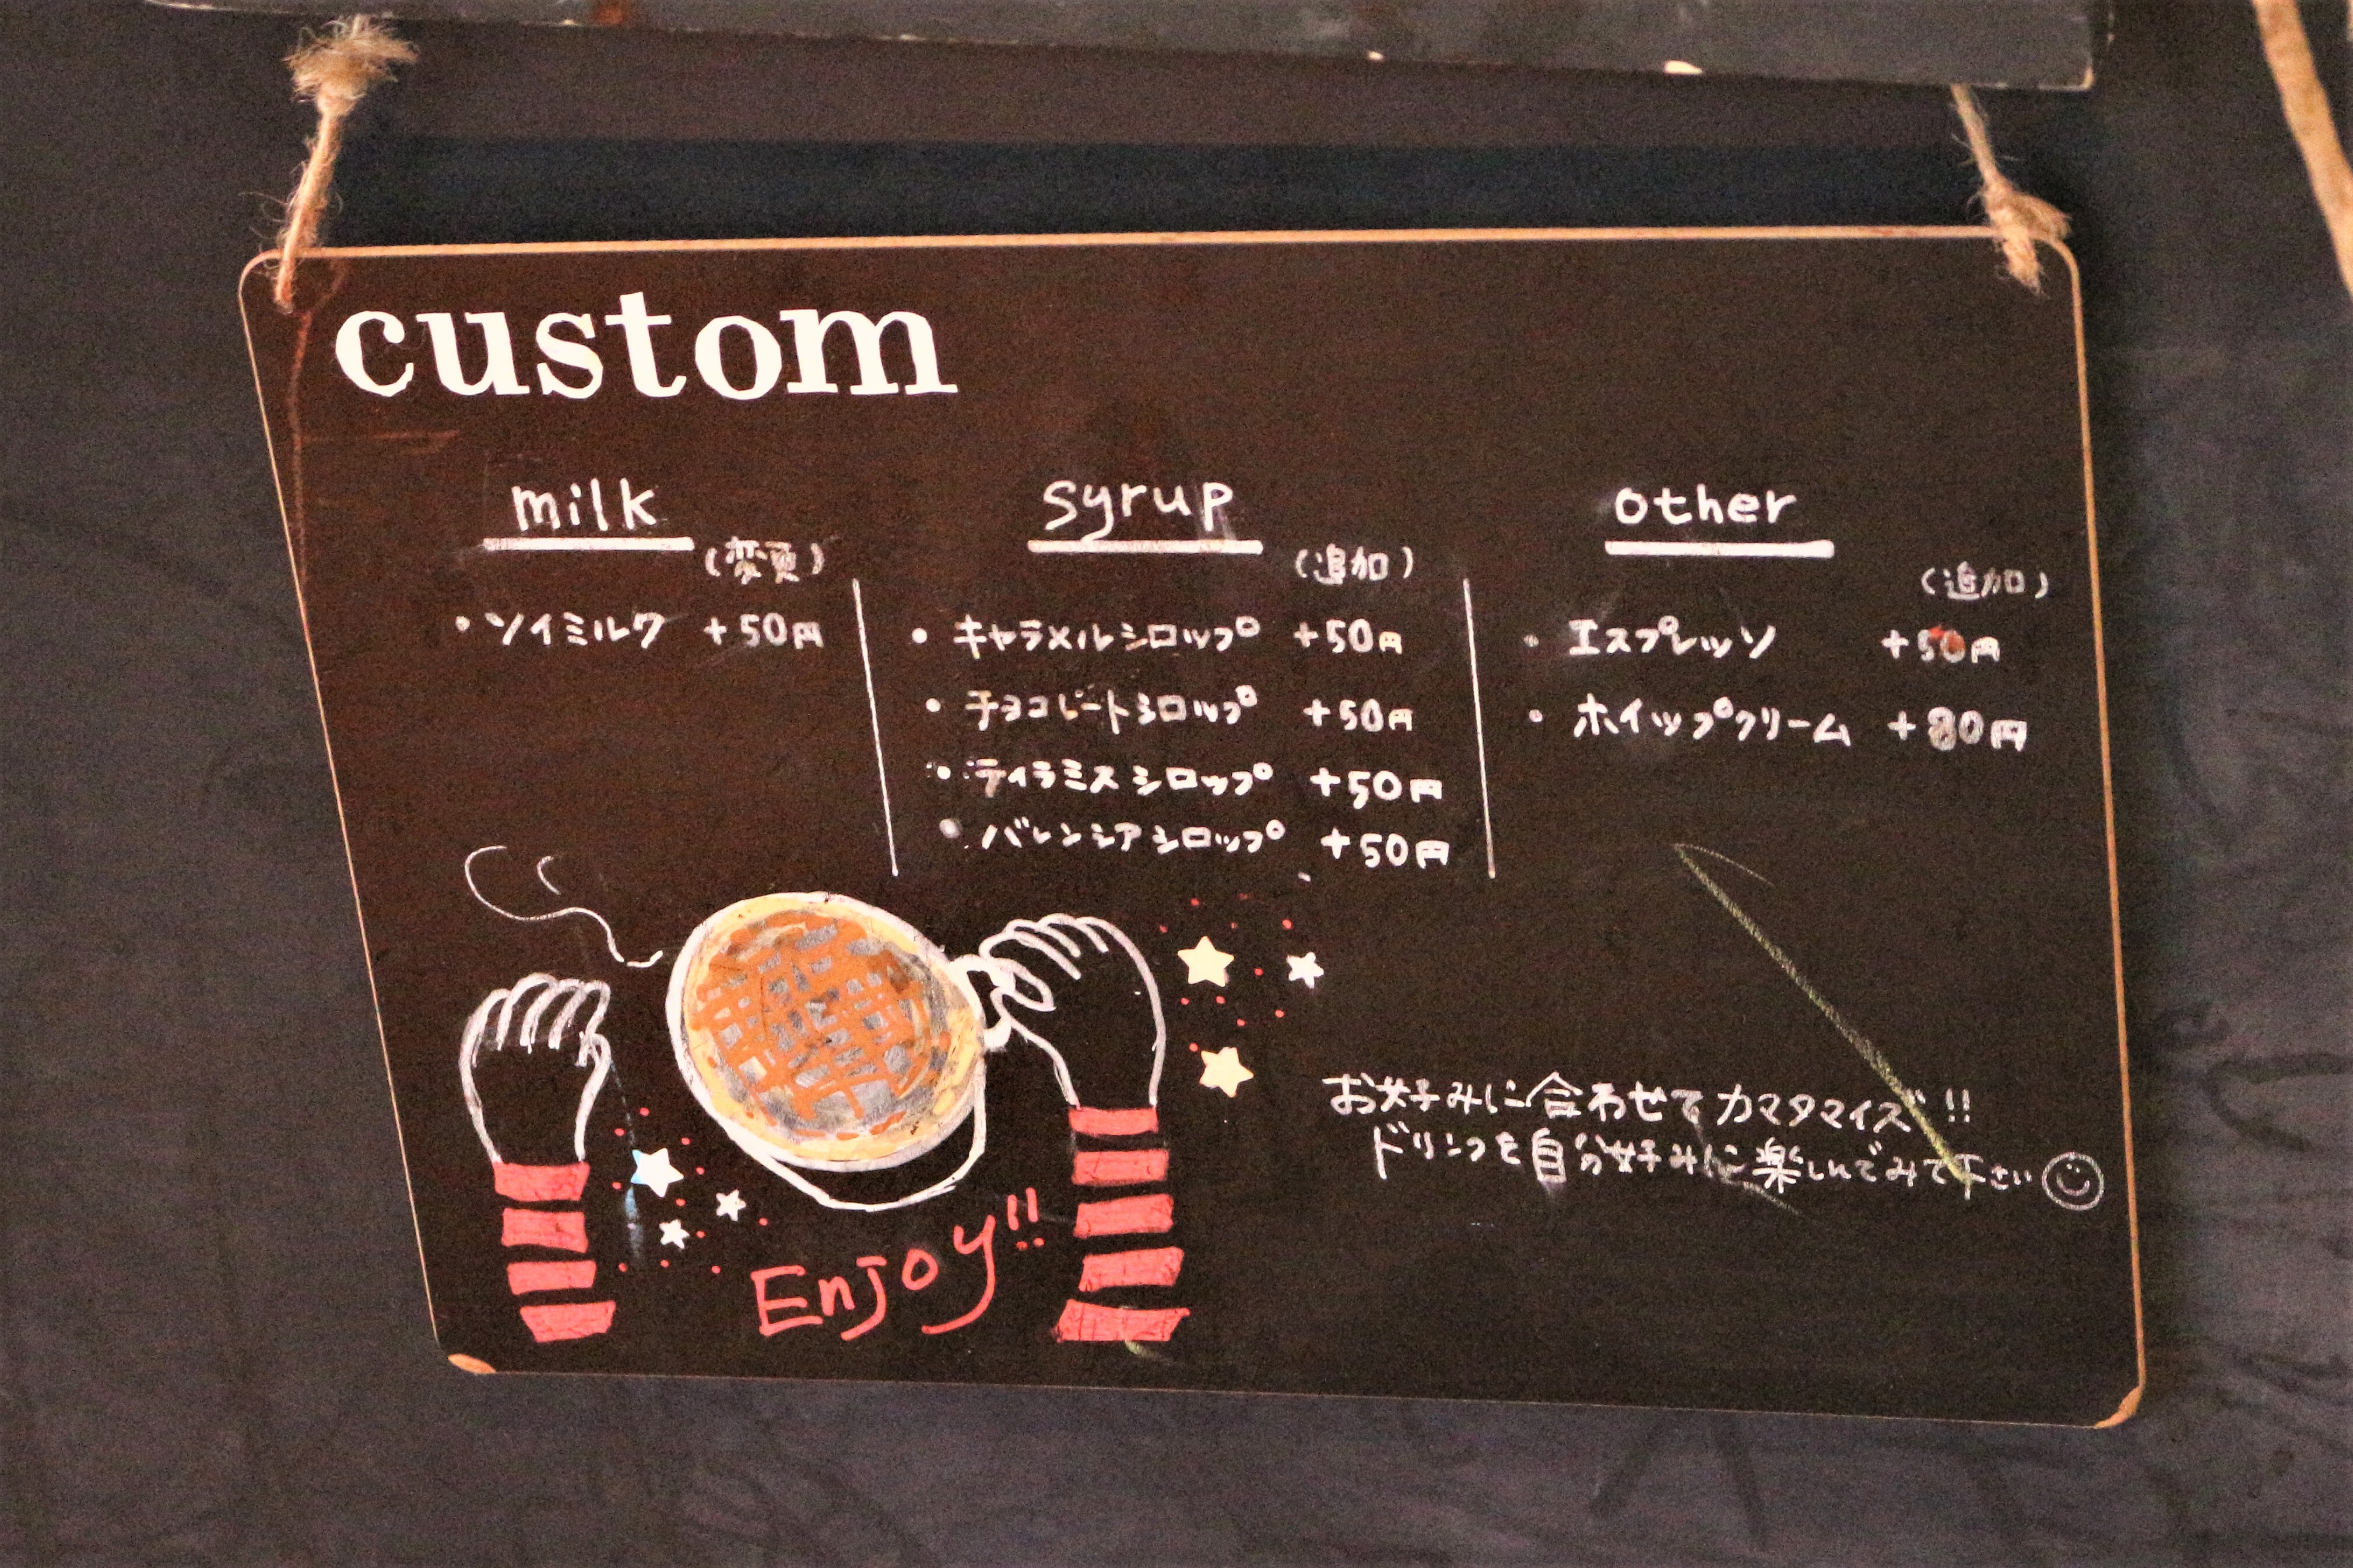 custom
milk
(変更)
・ソイミルク +50円
syrup
(追加)
・キャラメルシロップ +50円
・チョコレートシロップ +50円
・ティラミスシロップ +50円
・バレンシアシロップ +50円
other
(追加)
・エスプレッソ +50円
・ホイップクリーム +80円
お好みに合わせてカスタマイズ!!
ドリンクを自分好みに楽しんでみて下さい
Enjoy!!